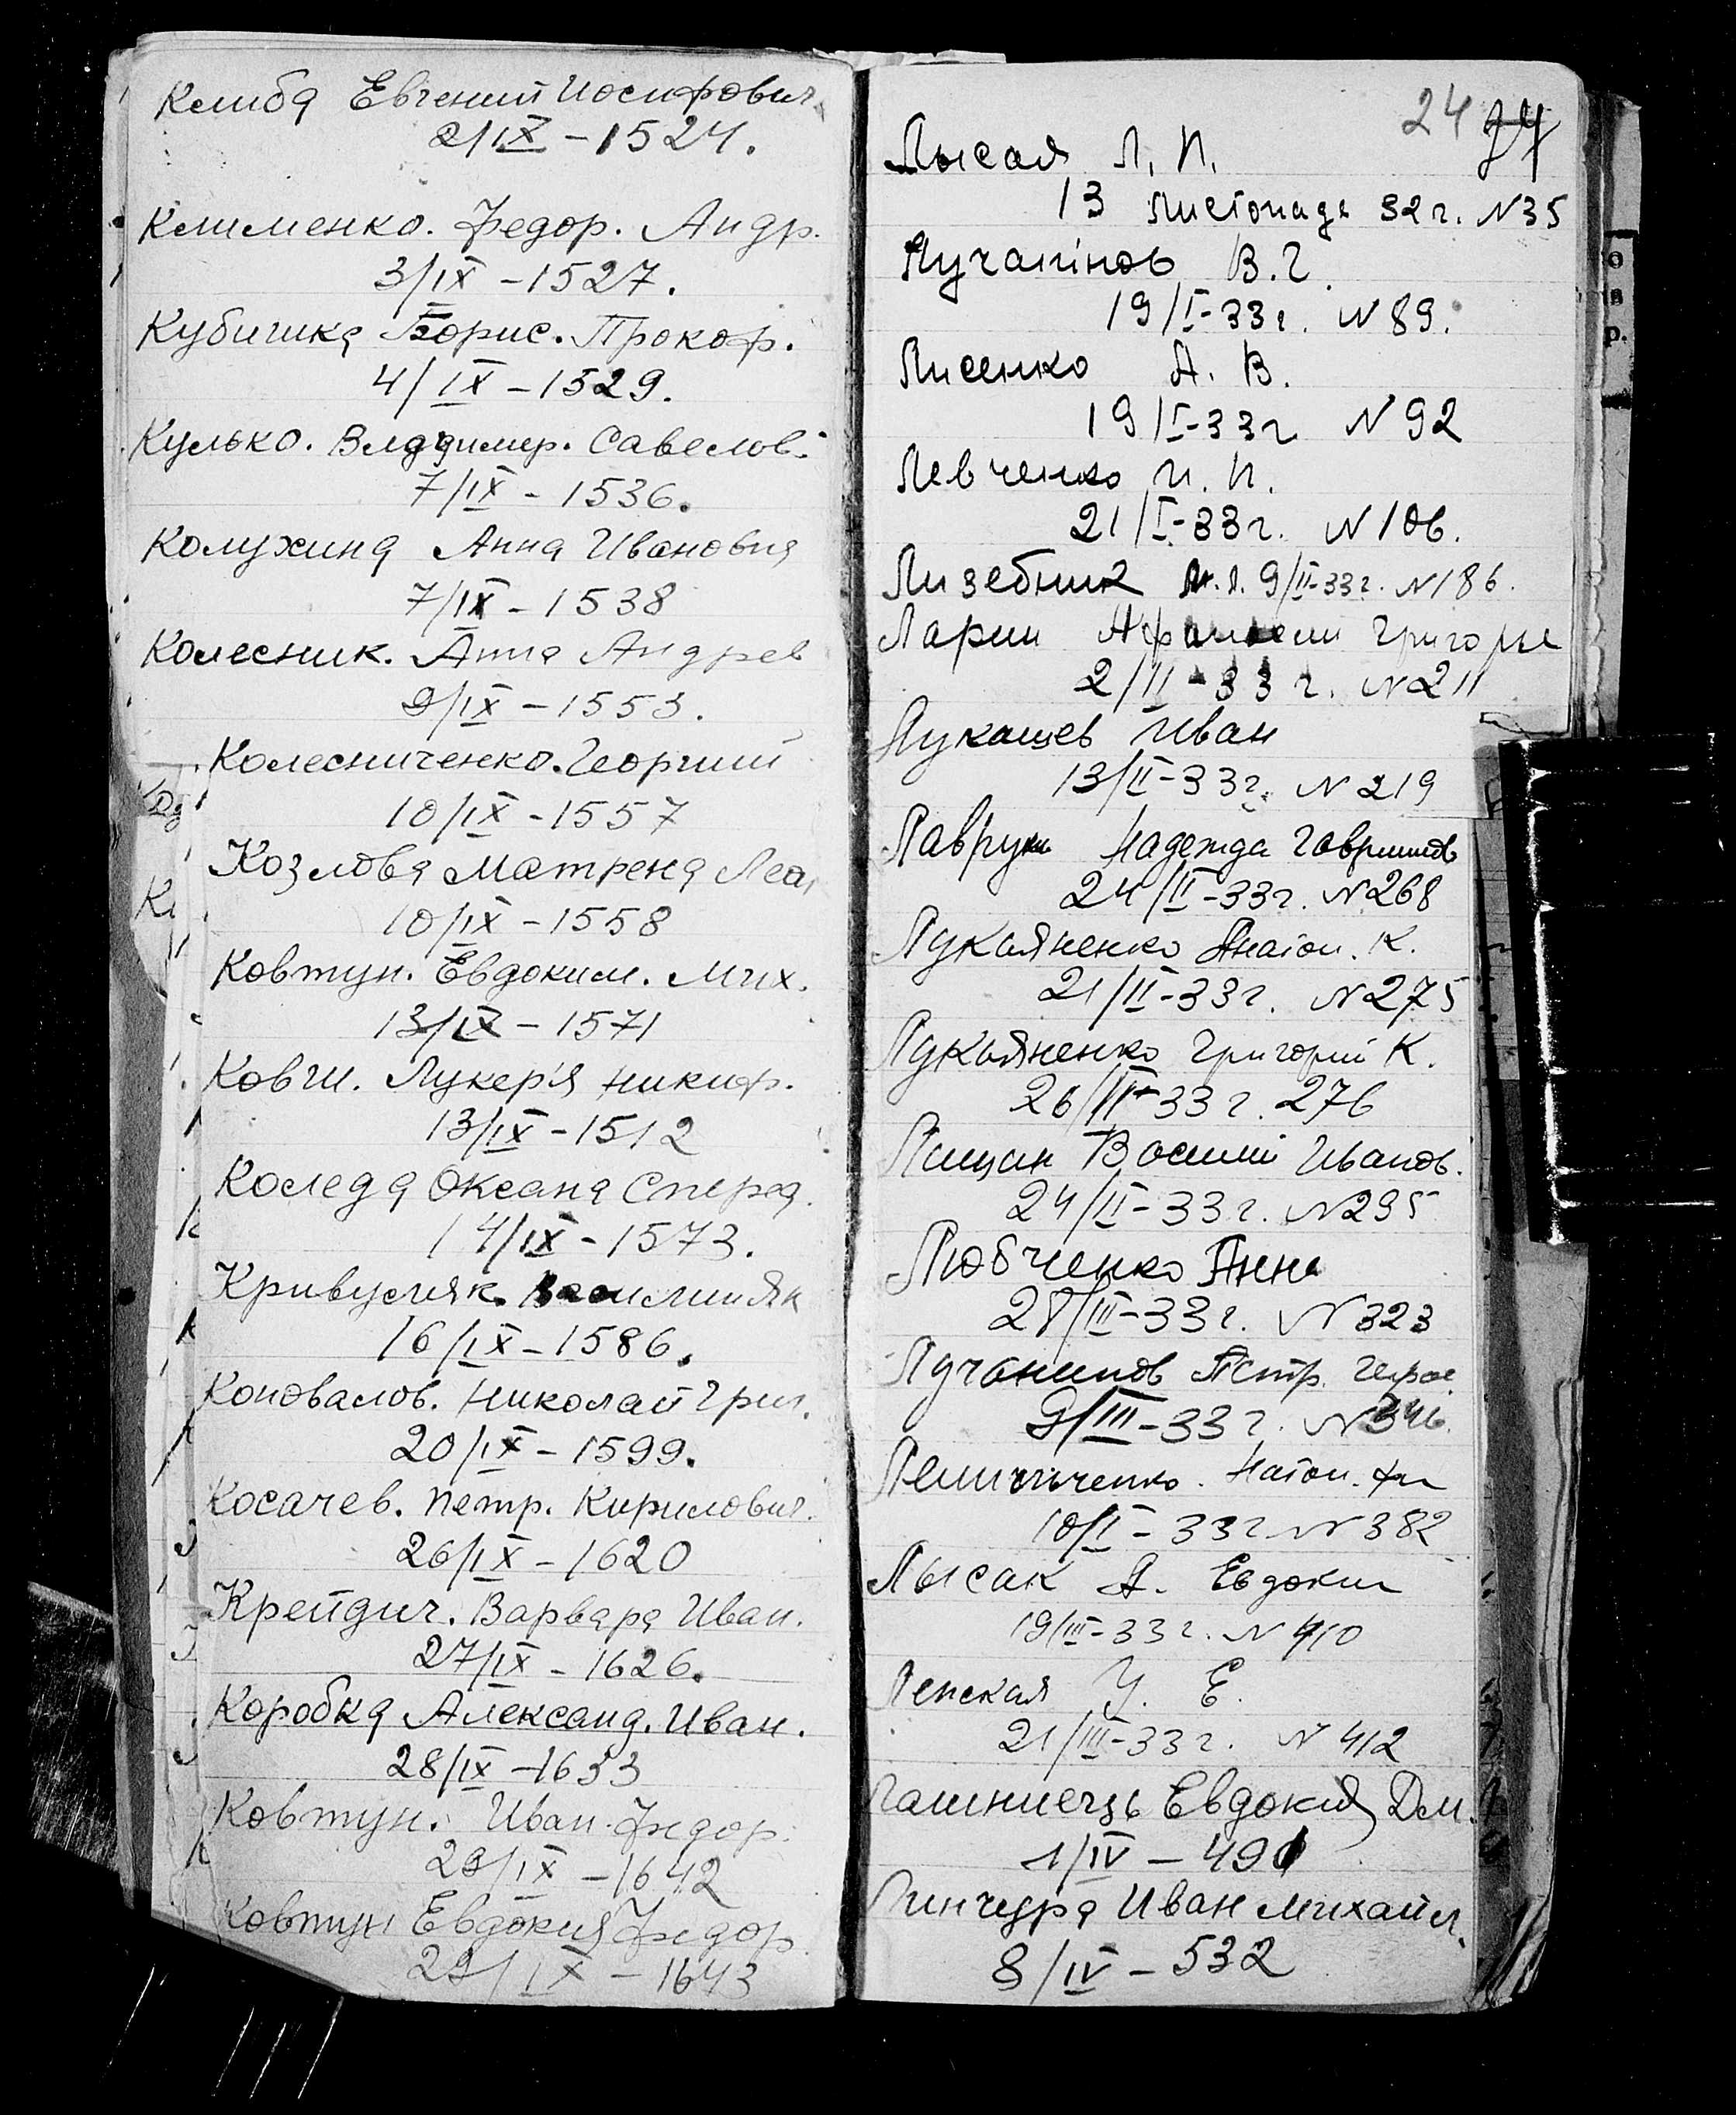 Клиба Евгений Иосифович
2/IX - 1524.
Клименко. Федор. Андр.
3/IX - 1527.
Кубичка Борис. Прокоф.
4/IX - 1529.
Кулько. Владимер. Савелов.
7/IX - 1536.
Колужина Анна Ивановна
7/IX - 1538
Колесник. Анна Андрев
9/IX - 1553.
Колесниченко. Георгий
10/IX - 1557
Козлова Матрена Леа
10/IX - 1558
Ковтун. Евдоким. Мих.
13/IX - 1571
Ковги. Лукер'я Никиф.
13/IX - 1512
Коледа Оксана Спирид.
14/IX - 1573.
Кривусняк.
16/IX - 1586.
Коновалов. Николай Григ.
20/IX - 1599.
Косачев. Петр. Кирилович.
26/IX - 1620
Крейдич. Варвара Иван.
27/IX - 1626.
Коробка Александ. Иван.
28/IX - 1633
Ковтун. Иван. Федор.
29/IX - 1642
Ковтун Евдокия Федор.
29/IX - 1643
24
Лысая Л. П.
13 листопада 32 г. N 35
Лучанінов В. Г.
19/I-33 г. N 89.
Лисенко А. В.
19/I-33 г N 92
Левченко И. П.
21/I-33 г. N 106.
Лизебник 9/II-33 г. N 186.
Ларин Григорье
2/II-33 г. N 211
Лукашев Иван
13/II-33 г. N 219
Лаврун Надежда Гаврилов
24/II-33 г. N 268
Лукьяненко Анатол. К.
21/II-33 г. N 275
Лукьяненко Григорий К.
26/II-33 г. 276
Лищин Василий Иванов.
24/II-33 г. N 295
Любченко Анна
28/III-33 г. N 323
Лучанинов Петр. Герас.
9/III-33 г. N 346.
Натал.
10/I-33 г N 382
Лысак А. Евдоким
19/III-33 г. N 410
Ленская У. Е.
21/III-33 г. N 412
Евдокия Дем.
1/IV - 491
Линчедра Иван Михайл.
8/IV - 532